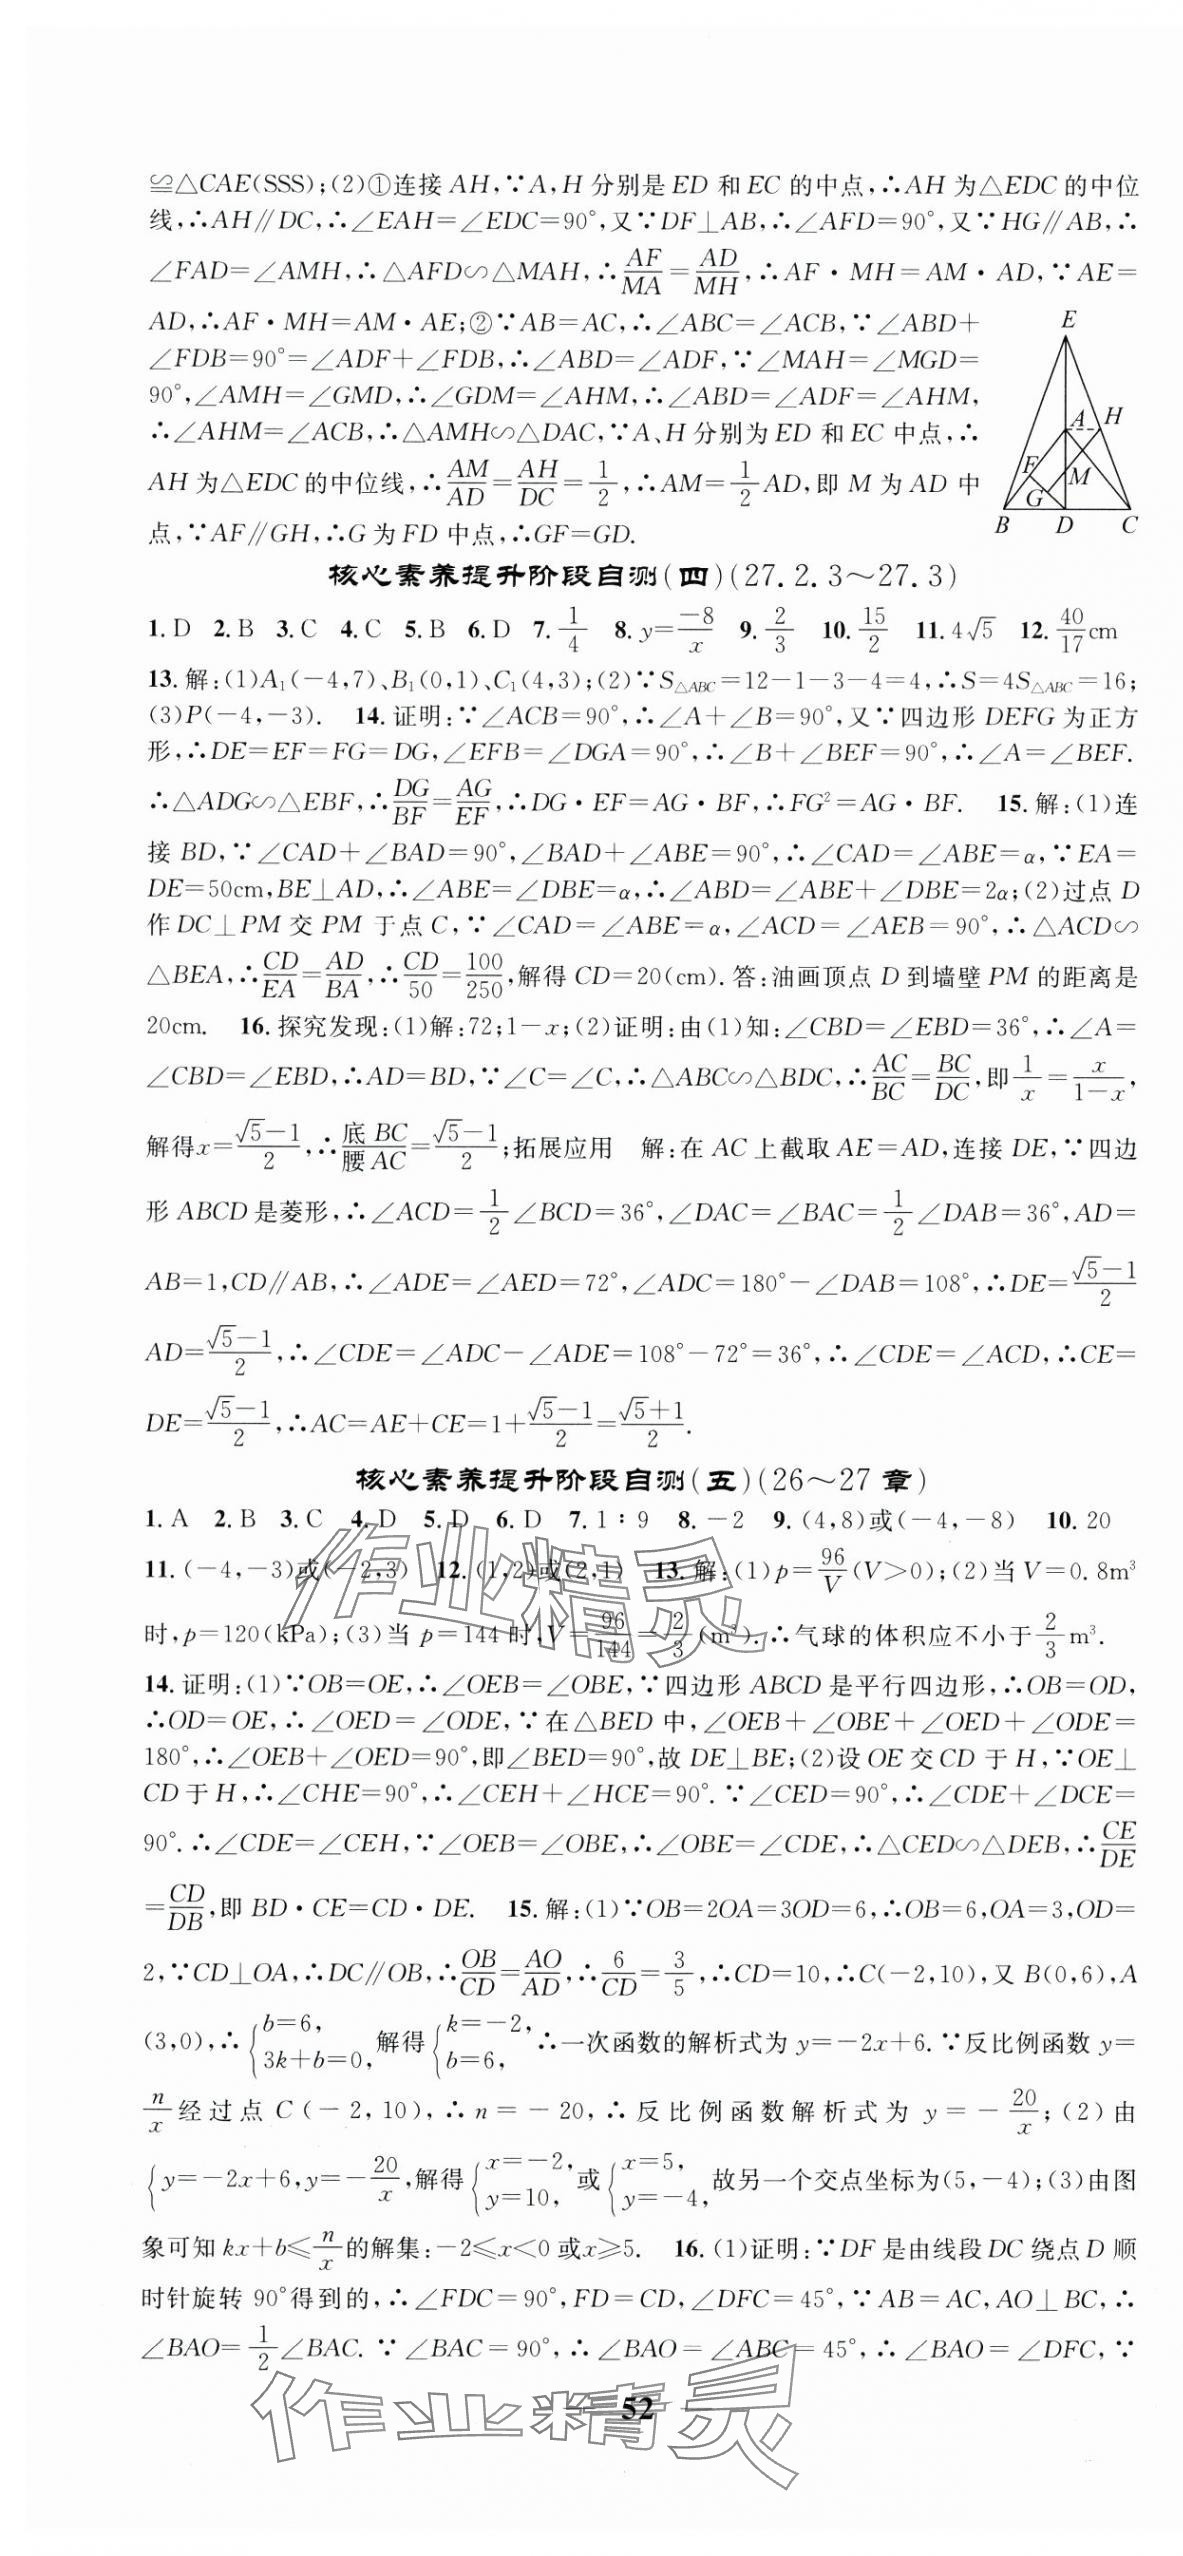 ≌△CAE(SSS);(2)①连接 AH,∵A,H 分别是 ED 和 EC 的中点,∴AH 为△EDC 的中位
线,∴AH∥DC,∴∠EAH=∠EDC=90°,又∵DF⊥AB,∴∠AFD=90°,又∵HG∥AB,∴
∠FAD=∠AMH,∴△AFD∽△MAH,∴AF/MA=AD/MH,∴AF·MH=AM·AD,∵AE=
AD,∴AF·MH=AM·AE;②∵AB=AC,∴∠ABC=∠ACB,∵∠ABD+
∠FDB=90°=∠ADF+∠FDB,∴∠ABD=∠ADF,∵∠MAH=∠MGD=
90°,∠AMH=∠GMD,∴∠GDM=∠AHM,∴∠ABD=∠ADF=∠AHM,
∴∠AHM=∠ACB,∴△AMH∽△DAC,∵A、H 分别为 ED 和 EC 中点,∴
AH 为△EDC 的中位线,∴AM/AD=AH/DC=1/2,∴AM=1/2AD,即 M 为 AD 中
点,∵AF∥GH,∴G 为 FD 中点,∴GF=GD.
E
A H
F M
G
B D C
核心素养提升阶段自测(四)(27.2.3～27.3)
1.D 2.B 3.C 4.C 5.B 6.D 7.1/4 8.y=-8/x 9.2/3 10.15/2 11.4√5 12.40/17cm
13.解:(1)A₁(-4,7)、B₁(0,1)、C₁(4,3);(2)∵S△ABC=12-1-3-4=4,∴S=4S△ABC=16;
(3)P(-4,-3). 14.证明:∵∠ACB=90°,∴∠A+∠B=90°,又∵四边形 DEFG 为正方
形,∴DE=EF=FG=DG,∠EFB=∠DGA=90°,∴∠B+∠BEF=90°,∴∠A=∠BEF.
∴△ADG∽△EBF,∴DG/BF=AG/EF,∴DG·EF=AG·BF,∴FG²=AG·BF. 15.解:(1)连
接 BD,∵∠CAD+∠BAD=90°,∠BAD+∠ABE=90°,∴∠CAD=∠ABE=α,∵EA=
DE=50cm,BE⊥AD,∴∠ABE=∠DBE=α,∴∠ABD=∠ABE+∠DBE=2α;(2)过点 D
作 DC⊥PM 交 PM 于点 C,∵∠CAD=∠ABE=α,∠ACD=∠AEB=90°,∴△ACD∽
△BEA,∴CD/EA=AD/BA,∴CD/50=100/250,解得 CD=20(cm).答:油画顶点 D 到墙壁 PM 的距离是
20cm. 16.探究发现:(1)解:72;1-x;(2)证明:由(1)知:∠CBD=∠EBD=36°,∴∠A=
∠CBD=∠EBD,∴AD=BD,∵∠C=∠C,∴△ABC∽△BDC,∴AC/BC=BC/DC,即1/x=x/(1-x),
解得x=(√5-1)/2,∴底 BC/腰 AC=(√5-1)/2;拓展应用 解:在 AC 上截取 AE=AD,连接 DE,∵四边
形 ABCD 是菱形,∴∠ACD=1/2∠BCD=36°,∠DAC=∠BAC=1/2∠DAB=36°,AD=
AB=1,CD∥AB,∴∠ADE=∠AED=72°,∠ADC=180°-∠DAB=108°,∴DE=(√5-1)/2
AD=(√5-1)/2,∴∠CDE=∠ADC-∠ADE=108°-72°=36°,∴∠CDE=∠ACD,∴CE=
DE=(√5-1)/2,∴AC=AE+CE=1+(√5-1)/2=(√5+1)/2.
核心素养提升阶段自测(五)(26～27 章)
1.A 2.B 3.C 4.D 5.D 6.D 7.1∶9 8.-2 9.(4,8)或(-4,-8) 10.20
11.(-4,-3)或(-2,3) 12.(1,2)或(2,1) 13.解:(1)p=96/V(V>0);(2)当 V=0.8m³
时,p=120(kPa);(3)当 p=144 时,V=96/144=2/3(m³).∴气球的体积应不小于2/3m³.
14.证明:(1)∵OB=OE,∴∠OEB=∠OBE,∵四边形 ABCD 是平行四边形,∴OB=OD,
∴OD=OE,∴∠OED=∠ODE,∵在△BED 中,∠OEB+∠OBE+∠OED+∠ODE=
180°,∴∠OEB+∠OED=90°,即∠BED=90°,故 DE⊥BE;(2)设 OE 交 CD 于 H,∵OE⊥
CD 于 H,∴∠CHE=90°,∴∠CEH+∠HCE=90°.∵∠CED=90°,∴∠CDE+∠DCE=
90°.∴∠CDE=∠CEH,∵∠OEB=∠OBE,∴∠OBE=∠CDE,∴△CED∽△DEB,∴CE/DE
=CD/DB,即 BD·CE=CD·DE. 15.解:(1)∵OB=2OA=3OD=6,∴OB=6,OA=3,OD=
2,∵CD⊥OA,∴DC∥OB,∴OB/CD=AO/AD,∴6/CD=3/5,∴CD=10,∴C(-2,10),又 B(0,6),A
(3,0),∴{b=6, 3k+b=0,解得{k=-2, b=6,∴一次函数的解析式为 y=-2x+6.∵反比例函数 y=
n/x经过点 C(-2,10),∴n=-20,∴反比例函数解析式为 y=-20/x;(2)由
{y=-2x+6,y=-20/x,解得{x=-2, y=10,或{x=5, y=-4,故另一个交点坐标为(5,-4);(3)由图
象可知 kx+b≤n/x的解集:-2≤x<0 或x≥5. 16.(1)证明:∵DF 是由线段 DC 绕点 D 顺
时针旋转 90°得到的,∴∠FDC=90°,FD=CD,∠DFC=45°,∵AB=AC,AO⊥BC,∴
∠BAO=1/2∠BAC.∵∠BAC=90°,∴∠BAO=∠ABC=45°,∴∠BAO=∠DFC,∵
52
作业精灵
作业精灵